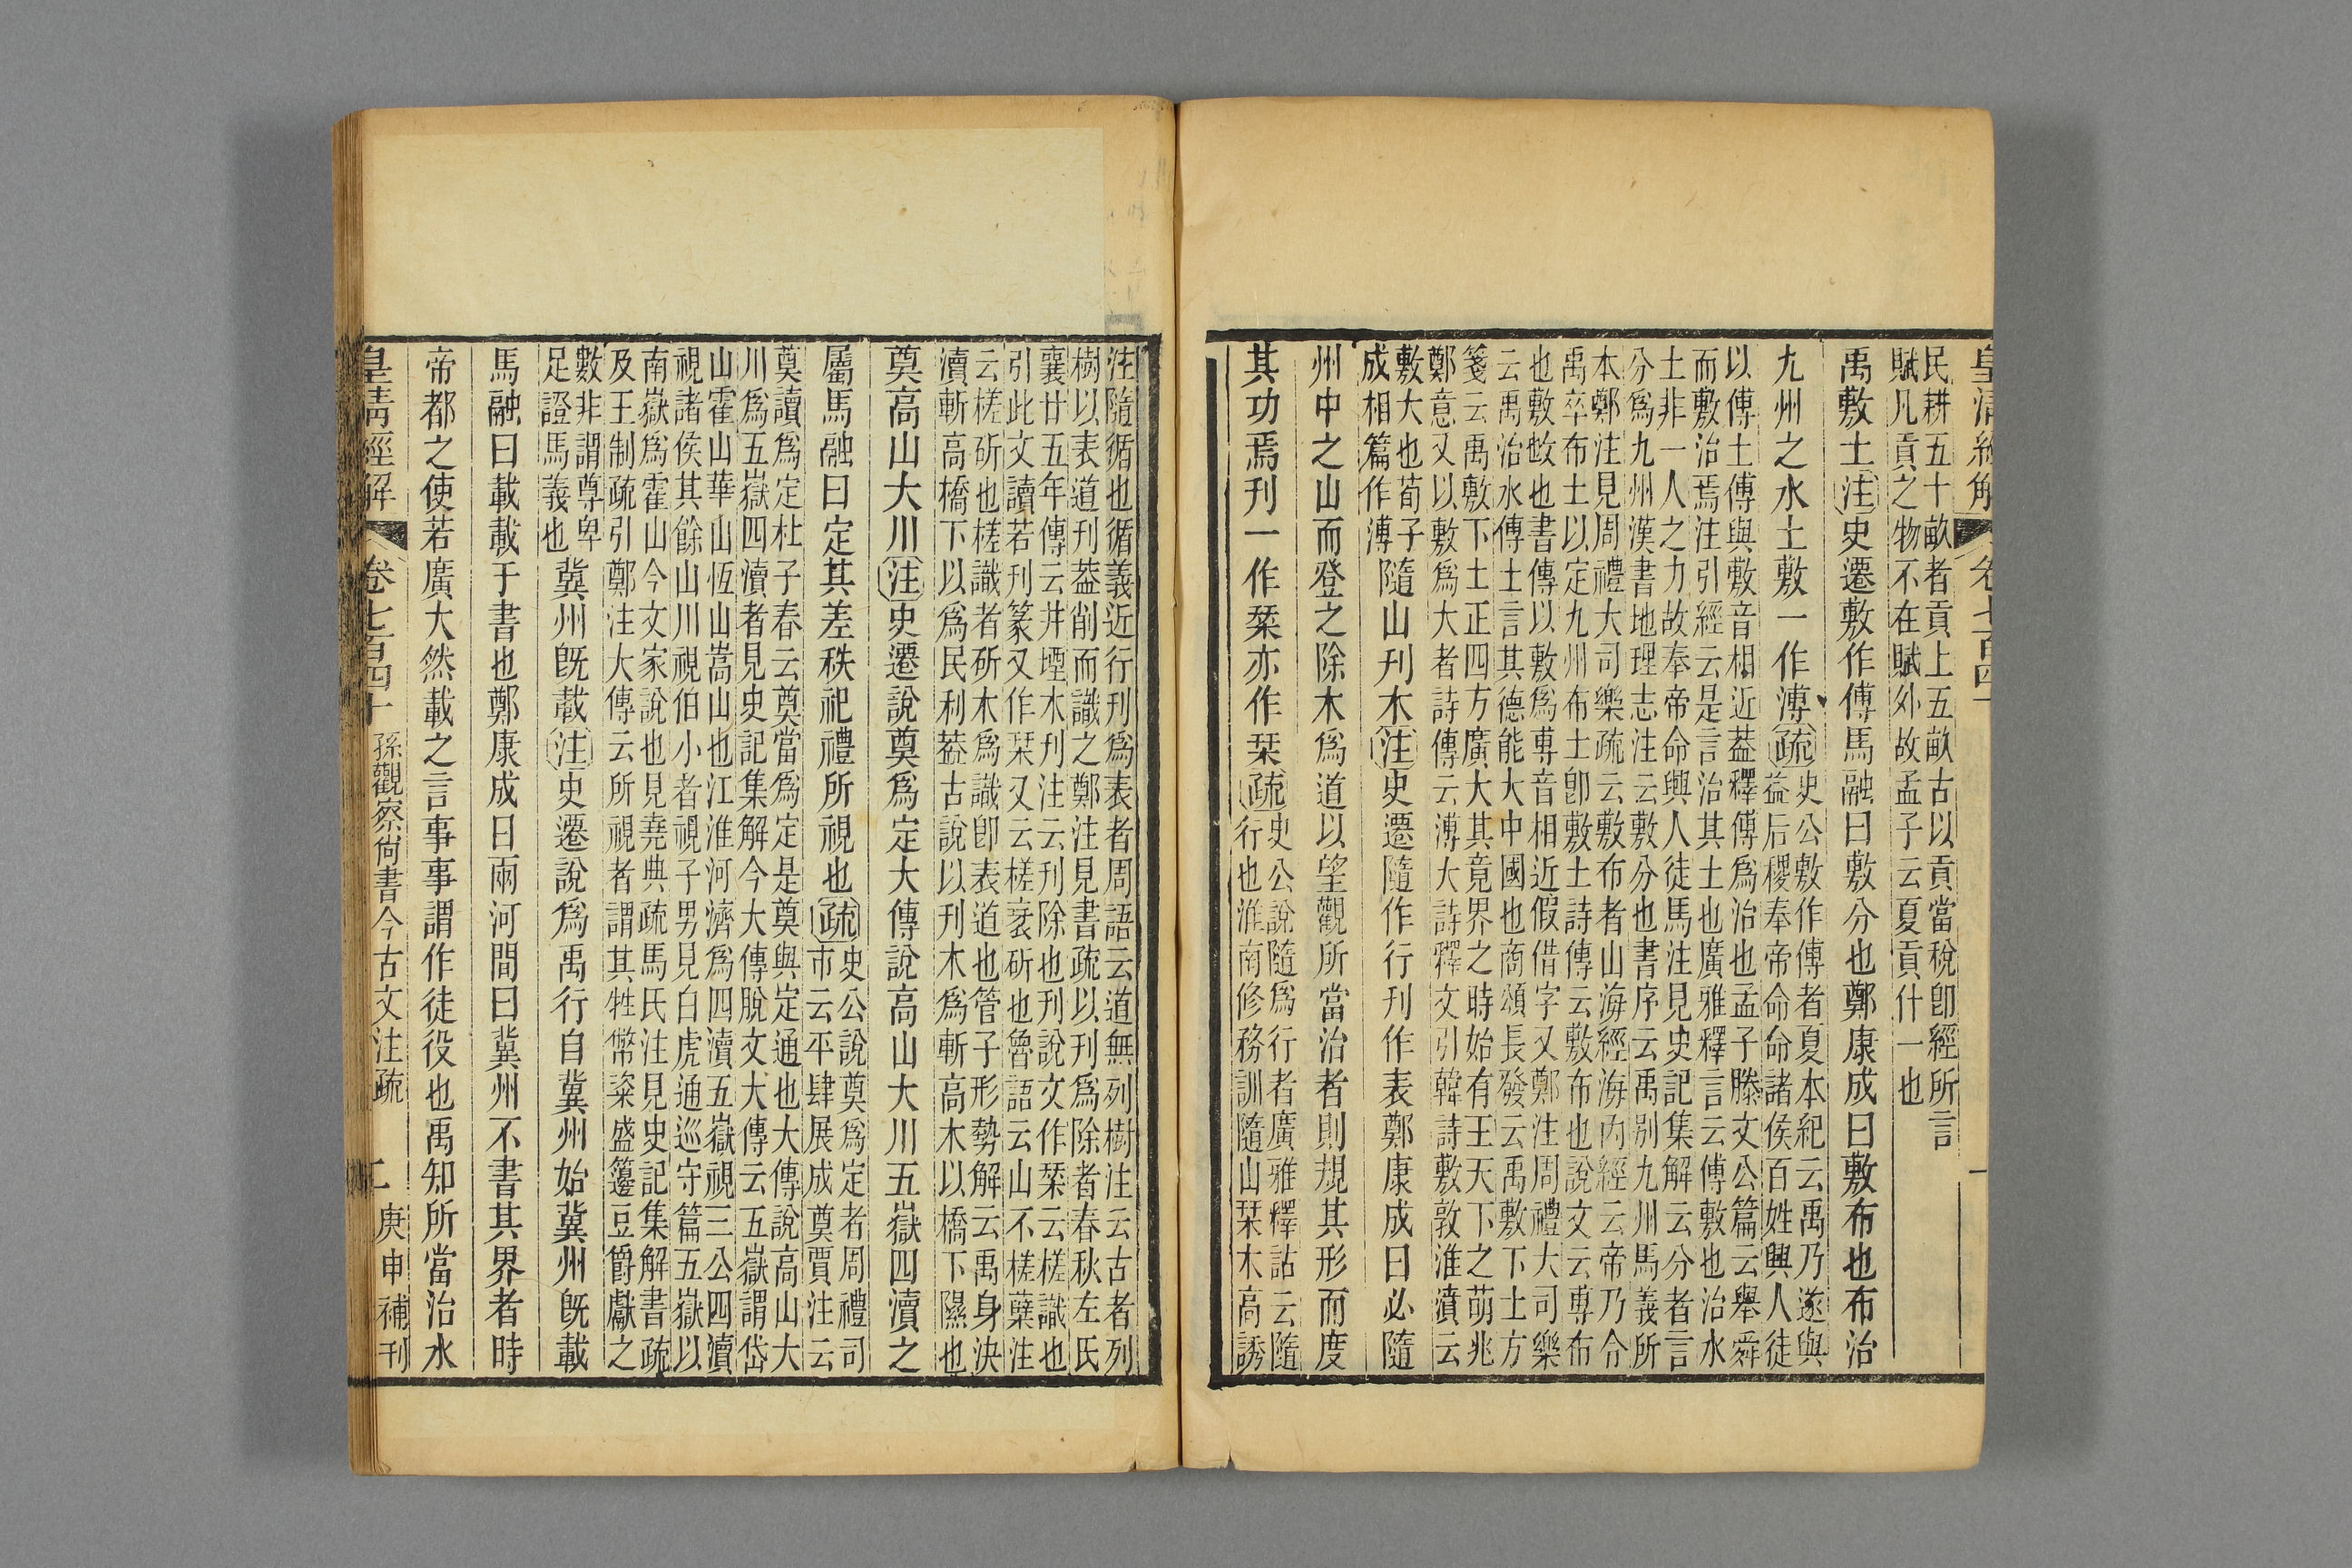 皇清經解 卷七百四十 一
民耕五十畝者貢上五畝古以貢當稅卽經所言
賦凡貢之物不在賦外故孟子云夏貢什一也
禹敷土注史遷敷作傅馬融曰敷分也鄭康成曰敷布也布治
九州之水土敷一作溥疏史公敷作傅者夏本紀云禹乃遂與
益后稷奉帝命命諸侯百姓興人徒
以傅土傅與敷音相近葢釋傅爲治也孟子滕文公篇云舉舜
而敷治焉注引經云是言治其土也廣雅釋言云傅敷也治水
土非一人之力故奉帝命興人徒馬注見史記集解云分者言
分爲九州漢書地理志注云敷分也書序云禹別九州馬義所
本鄭注見周禮大司樂疏云敷布者山海經海內經云帝乃令
禹卒布土以定九州布土卽敷土詩傳云敷布也說文云尃布
也敷㪺也書傳以敷爲尃音相近假借字又鄭注周禮大司樂
云禹治水傅土言其德能大中國也商頌長發云禹敷下土方
箋云禹敷下土正四方廣大其竟界之時始有王天下之萌兆
鄭意又以敷爲大者詩傳云溥大詩釋文引韓詩敷敦淮濆云
敷大也荀子
成相篇作溥隨山刊木注史遷隨作行刊作表鄭康成曰必隨
州中之山而登之除木爲道以望觀所當治者則規其形而度
其功焉刊一作栞亦作栞疏史公說隨爲行者廣雅釋詁云隨
行也淮南修務訓隨山栞木高誘
注隨循也循義近行刊爲表者周語云道無列樹注云古者列
樹以表道刊葢削而識之鄭注見書疏以刊爲除者春秋左氏
襄廿五年傳云井堙木刊注云刊除也刊說文作栞云槎識也
引此文讀若刊篆又作栞又云槎衺斫也魯語云山不槎蘖注
云槎斫也槎識者斫木爲識卽表道也管子形勢解云禹身決
瀆斬高橋下以爲民利葢古說以刊木爲斬高木以橋下隰也
奠高山大川注史遷說奠爲定大傳說高山大川五嶽四瀆之
屬馬融曰定其差秩祀禮所視也疏史公說奠爲定者周禮司
市云平肆展成奠賈注云
奠讀爲定杜子春云奠當爲定是奠與定通也大傳說高山大
川爲五嶽四瀆者見史記集解今大傳脫文大傳云五嶽謂岱
山霍山華山恆山嵩山也江淮河濟爲四瀆五嶽視三公四瀆
視諸侯其餘山川視伯小者視子男見白虎通巡守篇五嶽以
南嶽爲霍山今文家說也見堯典疏馬氏注見史記集解書疏
及王制疏引鄭注大傳云所視者謂其牲幣粢盛籩豆爵獻之
數非謂尊卑
足證馬義也冀州既載注史遷說爲禹行自冀州始冀州旣載
馬融曰載載于書也鄭康成曰兩河間曰冀州不書其界者時
帝都之使若廣大然載之言事事謂作徒役也禹知所當治水
皇清經解 卷七百四十 孫觀察尙書今古文注疏 二 庚申補刊